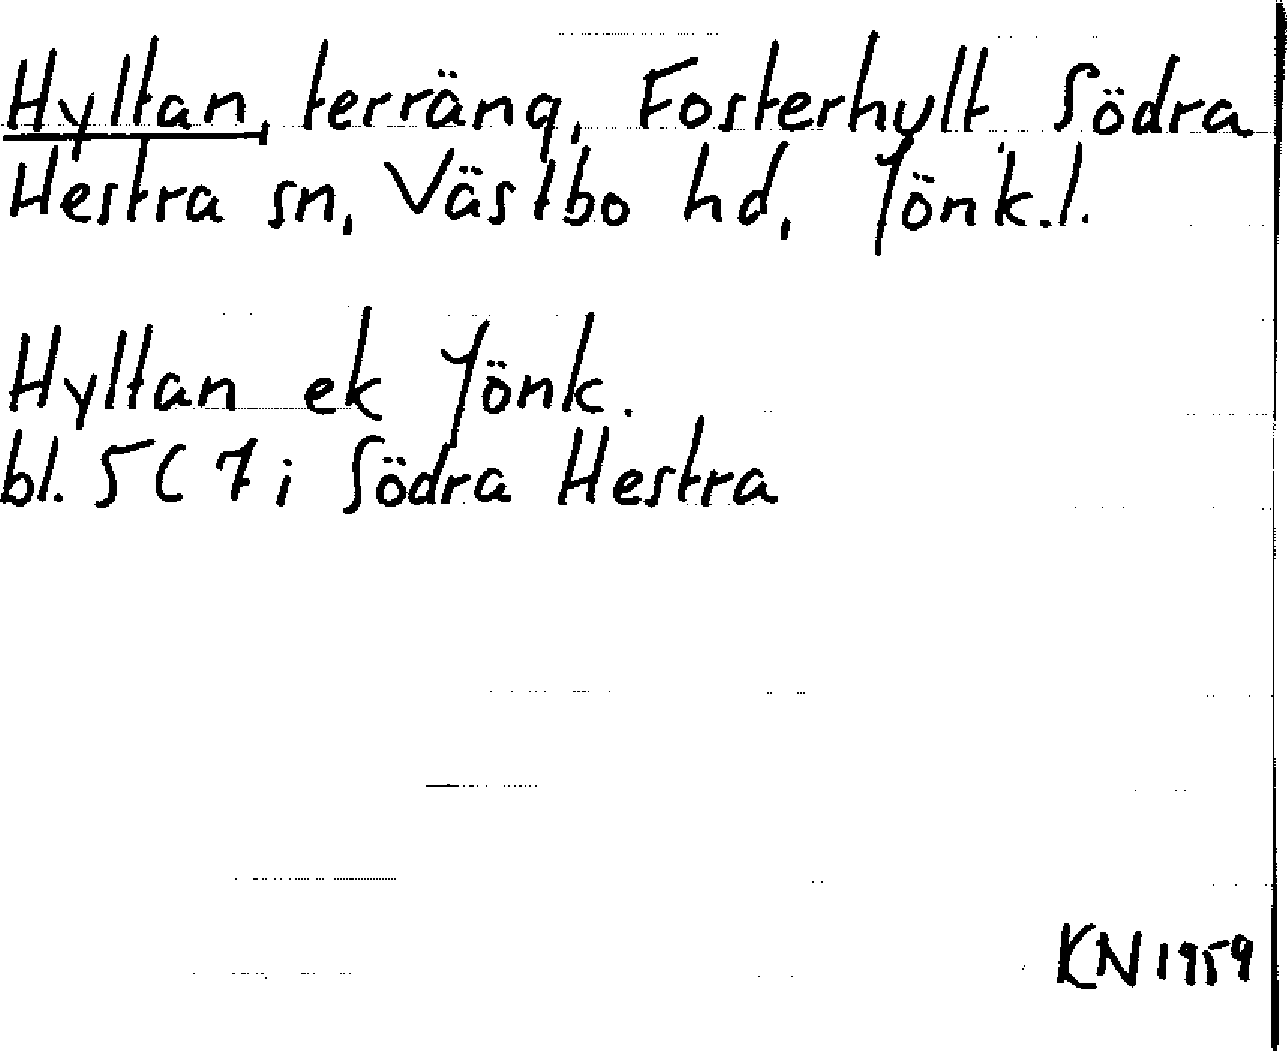 Hyltan, terräng, Fosterhylt, Södra
Hestra sn, Västbo hd, Jönk.l.
Hyltan ek Jönk.
bl. 5C7 i Södra Hestra
KN 1959